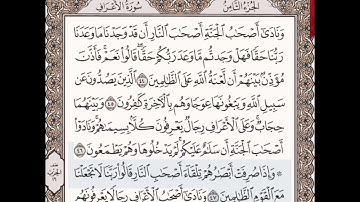 الجزء الثامن سورة الأعراف
وَنَادَىٰٓ أَصْحَٰبُ ٱلْجَنَّةِ أَصْحَٰبَ ٱلنَّارِ أَن قَدْ وَجَدْنَا مَا وَعَدَنَا
رَبُّنَا حَقًّا فَهَلْ وَجَدتُّم مَّا وَعَدَ رَبُّكُمْ حَقًّا ۖ قَالُوا۟ نَعَمْ ۚ فَأَذَّنَ
مُؤَذِّنٌۢ بَيْنَهُمْ أَن لَّعْنَةُ ٱللَّهِ عَلَى ٱلظَّٰلِمِينَ ٤٤ ٱلَّذِينَ يَصُدُّونَ عَن
سَبِيلِ ٱللَّهِ وَيَبْغُونَهَا عِوَجًا وَهُم بِٱلْءَاخِرَةِ كَٰفِرُونَ ٤٥ وَبَيْنَهُمَا
حِجَابٌ ۚ وَعَلَى ٱلْأَعْرَافِ رِجَالٌ يَعْرِفُونَ كُلًّۢا بِسِيمَىٰهُمْ ۚ وَنَادَوْا۟
أَصْحَٰبَ ٱلْجَنَّةِ أَن سَلَٰمٌ عَلَيْكُمْ ۚ لَمْ يَدْخُلُوهَا وَهُمْ يَطْمَعُونَ ٤٦
۞ وَإِذَا صُرِفَتْ أَبْصَٰرُهُمْ تِلْقَآءَ أَصْحَٰبِ ٱلنَّارِ قَالُوا۟ رَبَّنَا لَا تَجْعَلْنَا
مَعَ ٱلْقَوْمِ ٱلظَّٰلِمِينَ ٤٧ وَنَادَىٰٓ أَصْحَٰبُ ٱلْأَعْرَافِ رِجَالًا يَعْرِفُونَهُم